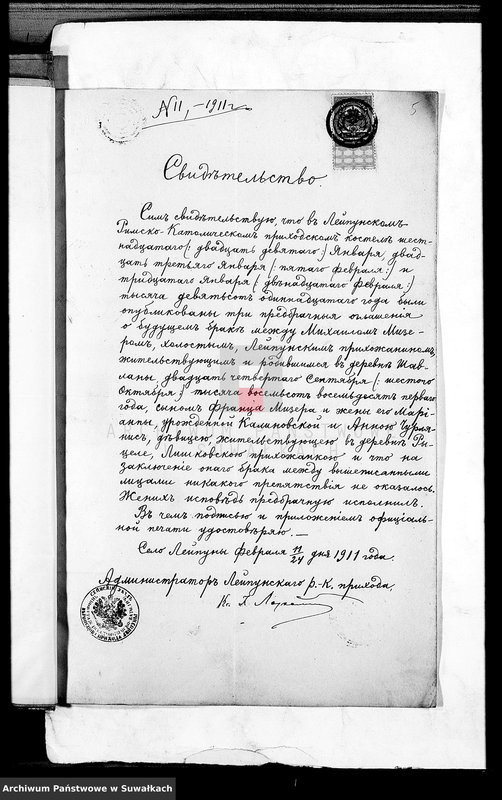 N 11, - 1911 г.
5
Свидѣтельство.
Симъ свидѣтельствую, что въ Лейпунскомъ
Римско-Католическомъ приходскомъ костелѣ шест-
надцатаго (: двадцать девятаго :) Января, двад-
цать третьяго Января (: пятаго февраля :) и
тридцатаго Января (: двѣнадцатаго февраля :)
тысяча девятьсотъ одиннадцатаго года были
опубликованы три предбрачныя оглашенія
о будущемъ бракѣ между Михаиломъ Мизе-
ромъ, холостымъ, Лейпунскимъ прихожаниномъ,
жительствующимъ и родившимся въ деревнѣ Шав-
ланы, двадцать четвертаго Сентября (: шестого
Октября :) тысяча восемьсотъ восемьдесятъ перваго
года, сыномъ Франца Мизера и жены его Марі-
анны, урожденной Калиновской и Анною Чурля-
нисъ, дѣвицею, жительствующею въ деревнѣ
целе, Лишковскою прихожанкою и что на
заключеніе онаго брака между вышеписанными
лицами никакого препятствія не оказалось.
Женихъ исповѣдь предбрачную исполнилъ.
Въ чемъ подписью и приложеніемъ офиціаль-
ной печати удостовѣряю.—
Село Лейпуны Февраля 11/24 дня 1911 года.
Администраторъ Лейпунскаго р.-к. прихода
Кс.
Archiwum Państwowe w Suwałkach